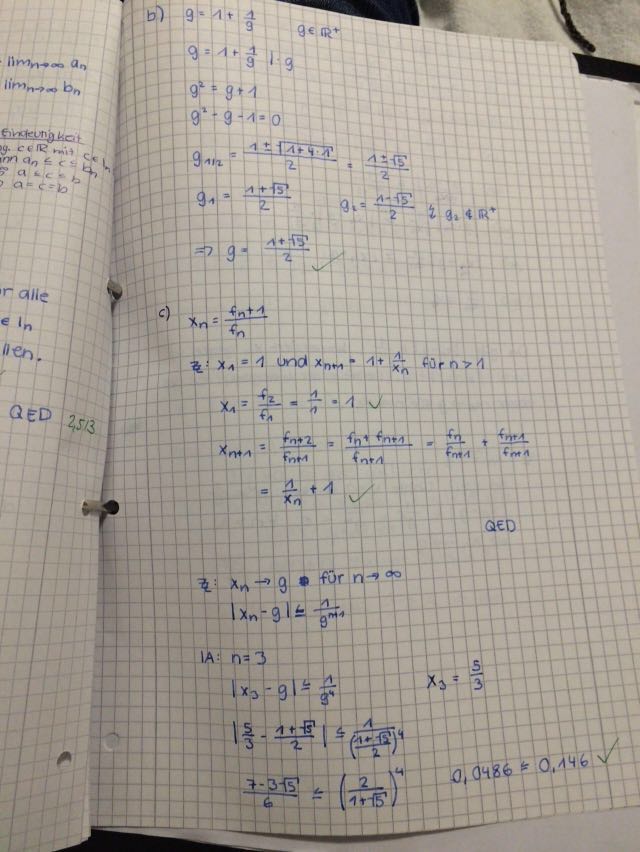 lim_{n→∞} a_n
lim_{n→∞} b_n
eindeutigkeit
c∈ℝ mit c ∈ I_n
a_n ≤ c ≤ b_n
a ≤ c ≤ b
a = c = b
r alle
∈ I_n
llen.
QED 2,5/3
b) g = 1 + 1/g g ∈ ℝ⁺
g = 1 + 1/g | · g
g² = g + 1
g² - g - 1 = 0
g_{1/2} = (1 ± √(1+4·1))/2 = (1 ± √5)/2
g₁ = (1+√5)/2 g₂ = (1-√5)/2 ↯ g₂ ∉ ℝ⁺
=> g = (1+√5)/2 ✓
c) x_n = f_{n+1}/f_n
zz: x₁ = 1 und x_{n+1} = 1 + 1/x_n für n > 1
x₁ = f₂/f₁ = 1/1 = 1 ✓
x_{n+1} = f_{n+2}/f_{n+1} = (f_n + f_{n+1})/f_{n+1} = f_n/f_{n+1} + f_{n+1}/f_{n+1}
= 1/x_n + 1 ✓
QED
zz: x_n → g für n → ∞
|x_n - g| ≤ 1/g^{n+1}
IA: n = 3
|x₃ - g| ≤ 1/g⁴ x₃ = 5/3
|5/3 - (1+√5)/2| ≤ 1/((1+√5)/2)⁴
(7-3√5)/6 ≤ (2/(1+√5))⁴ 0,0486 ≤ 0,146 ✓